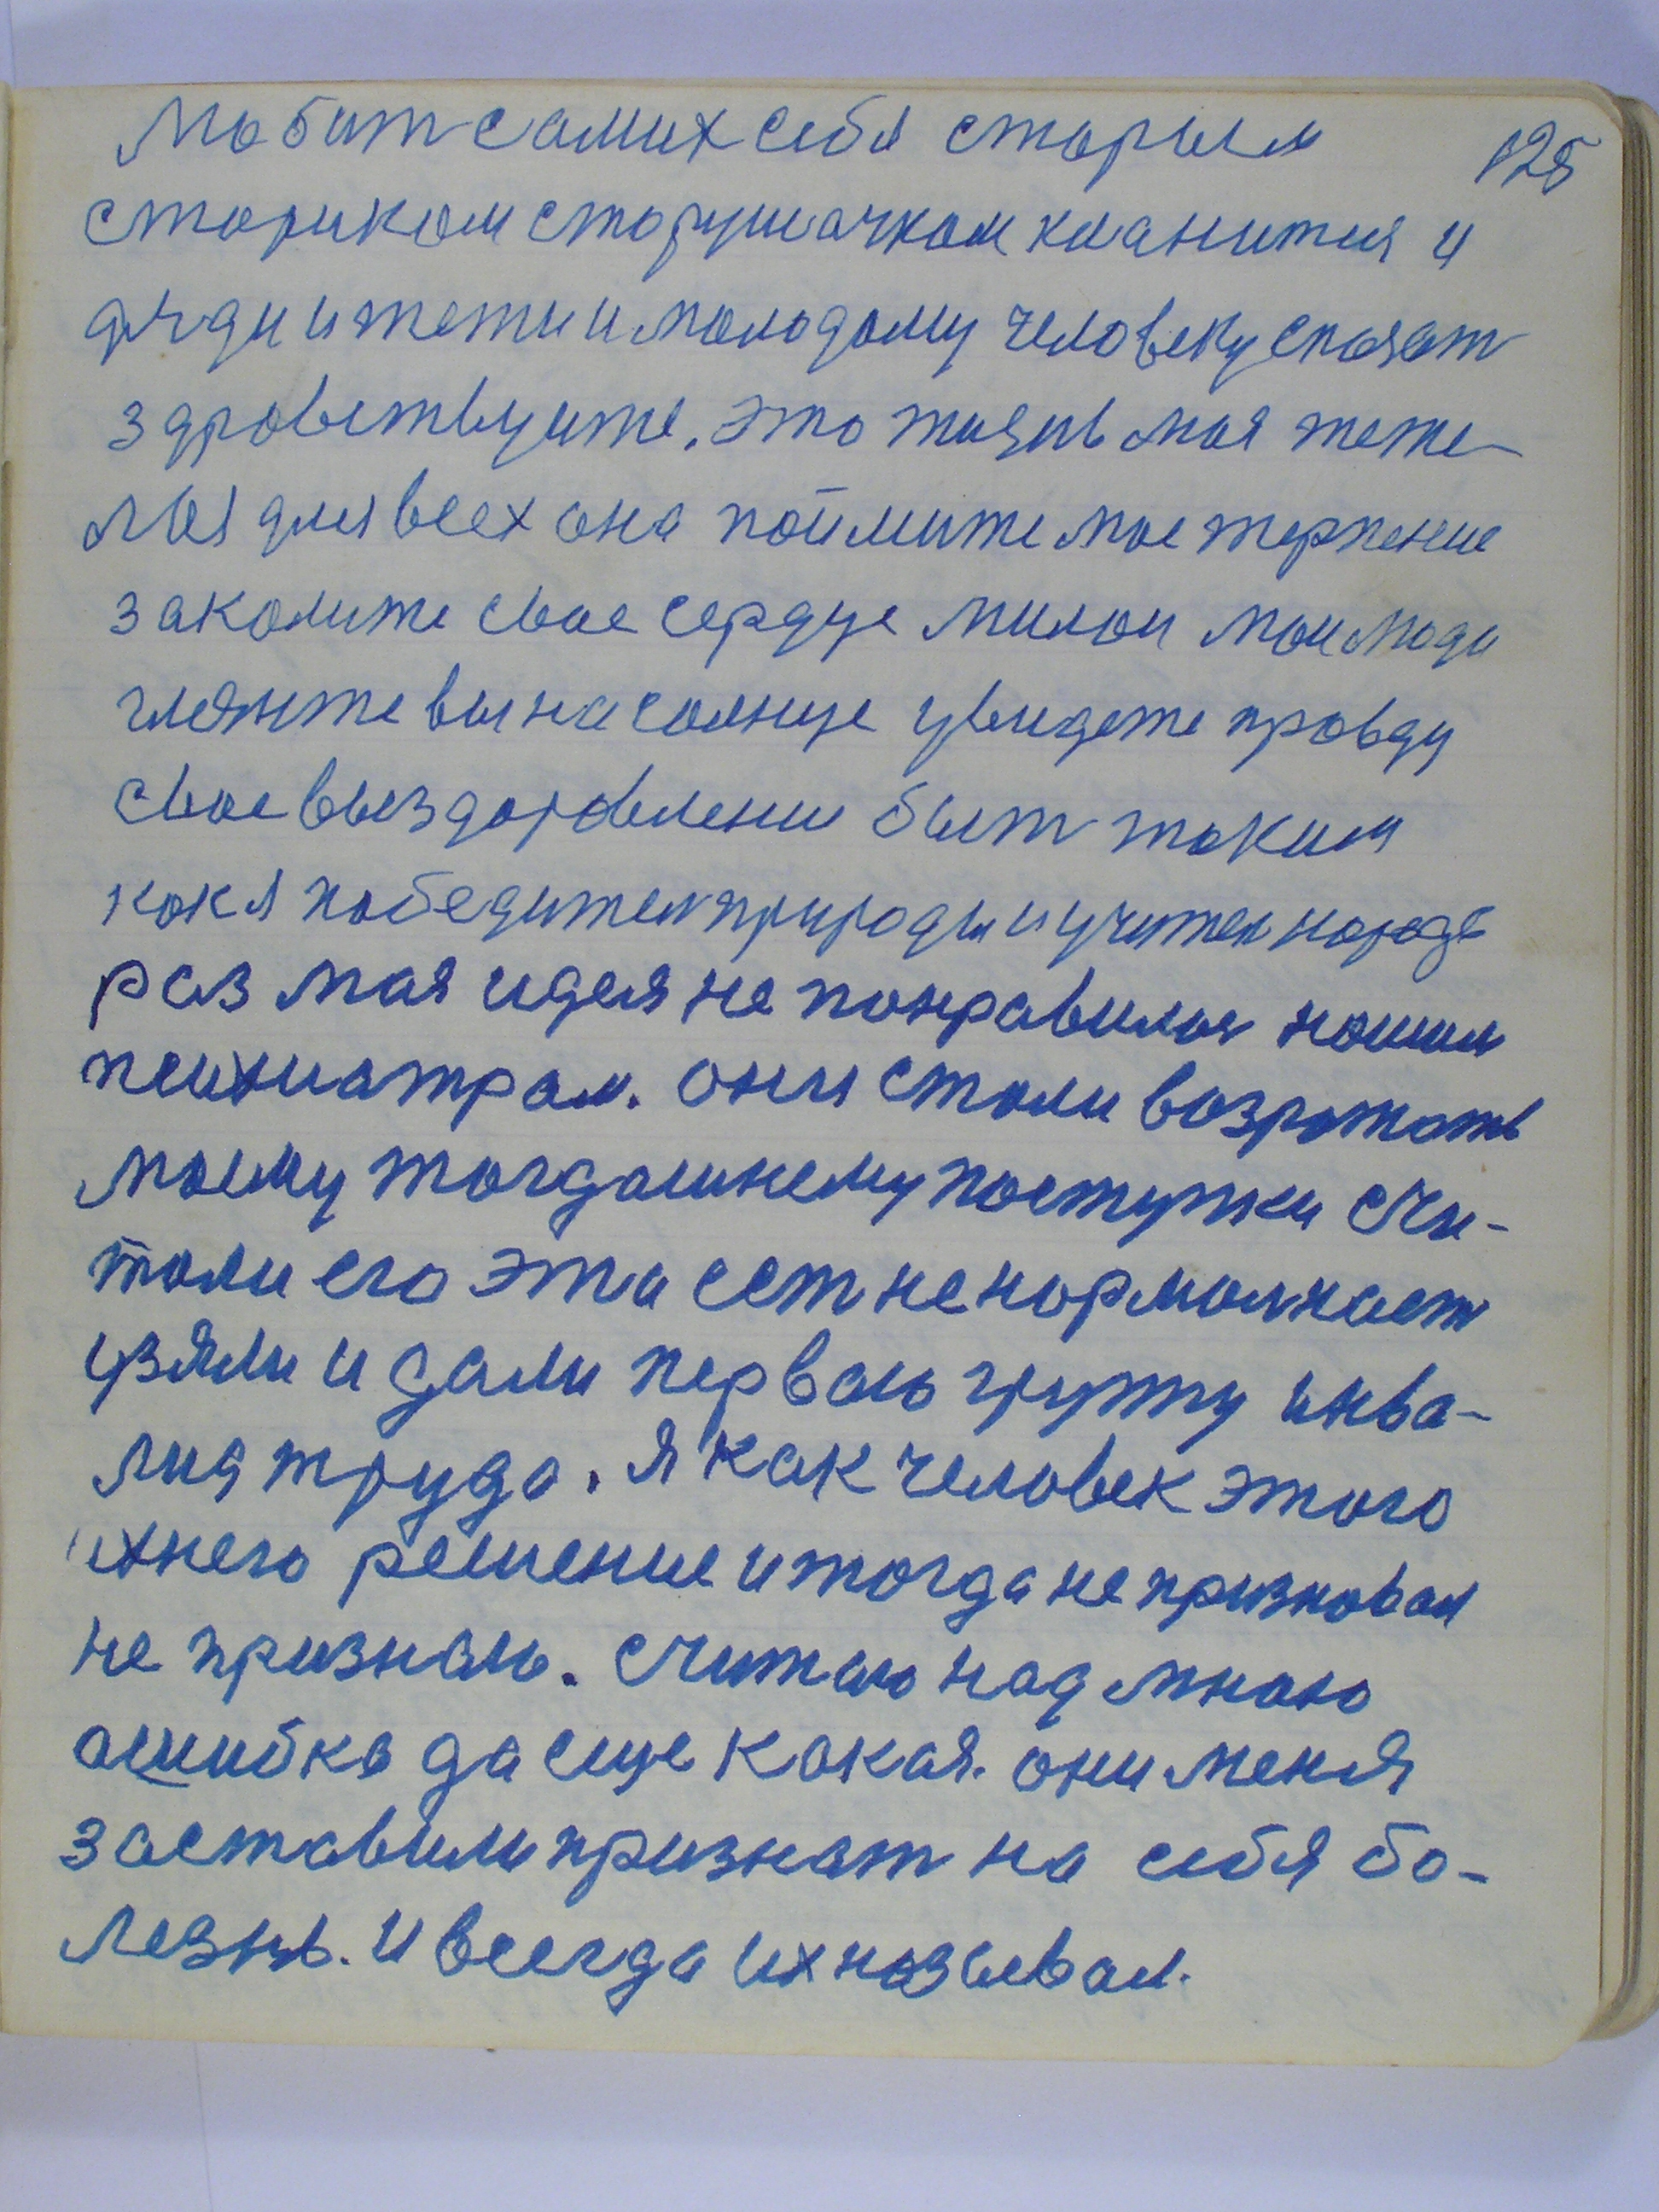 любит самих себя старым 125
стариком старушачком кланится и
дяди и тети и молодому человеку скажит
здровствуите. это жизнь моя теже-
лая для всех она поймите мое терпение
закалите свое сердце милои мои люди
гляните вы на солнце увидете правду
свое выздоровление быт таким
как я победител природы и учител народа
раз мая идея не понравилась нашим
психиатрам. они стали возрожать
моему тогдашнему поступки счи-
тали его эта ест ненормалност
узяли и дали первою групу инва-
лид труда. Я как человек этого
ихнего решение и тогда не признавал
не признаю. Считаю над мною
ошибка да еще какая. они меня
заставили признат на себя бо-
лезнь. И всегда их називал.